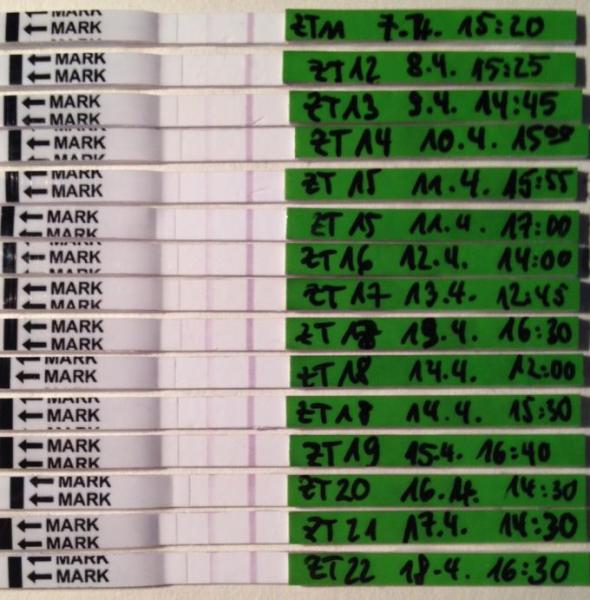 MARK
← MARK ZTM 7.4. 15:20
MARK
← MARK ZT12 8.4. 15:25
← MARK ZT13 9.4. 14:45
MARK
← MARK ZT14 10.4. 15:00
MARK
MARK
← MARK ZT15 11.4. 15:55
← MARK ZT15 11.4. 17:00
MARK
← MARK ZT16 12.4. 14:00
← MARK ZT17 13.4. 12:45
MARK
← MARK 16:30
MARK
← MARK
← MARK ZT18 14.4. 12:00
MARK
← MARK ZT18 14.4. 15:30
← MARK ZT19 15.4. 16:40
MARK
← MARK
← MARK ZT20 16.4. 14:30
← MARK ZT21 17.4. 14:30
← MARK
MARK
← MARK ZT22 18.4. 16:30